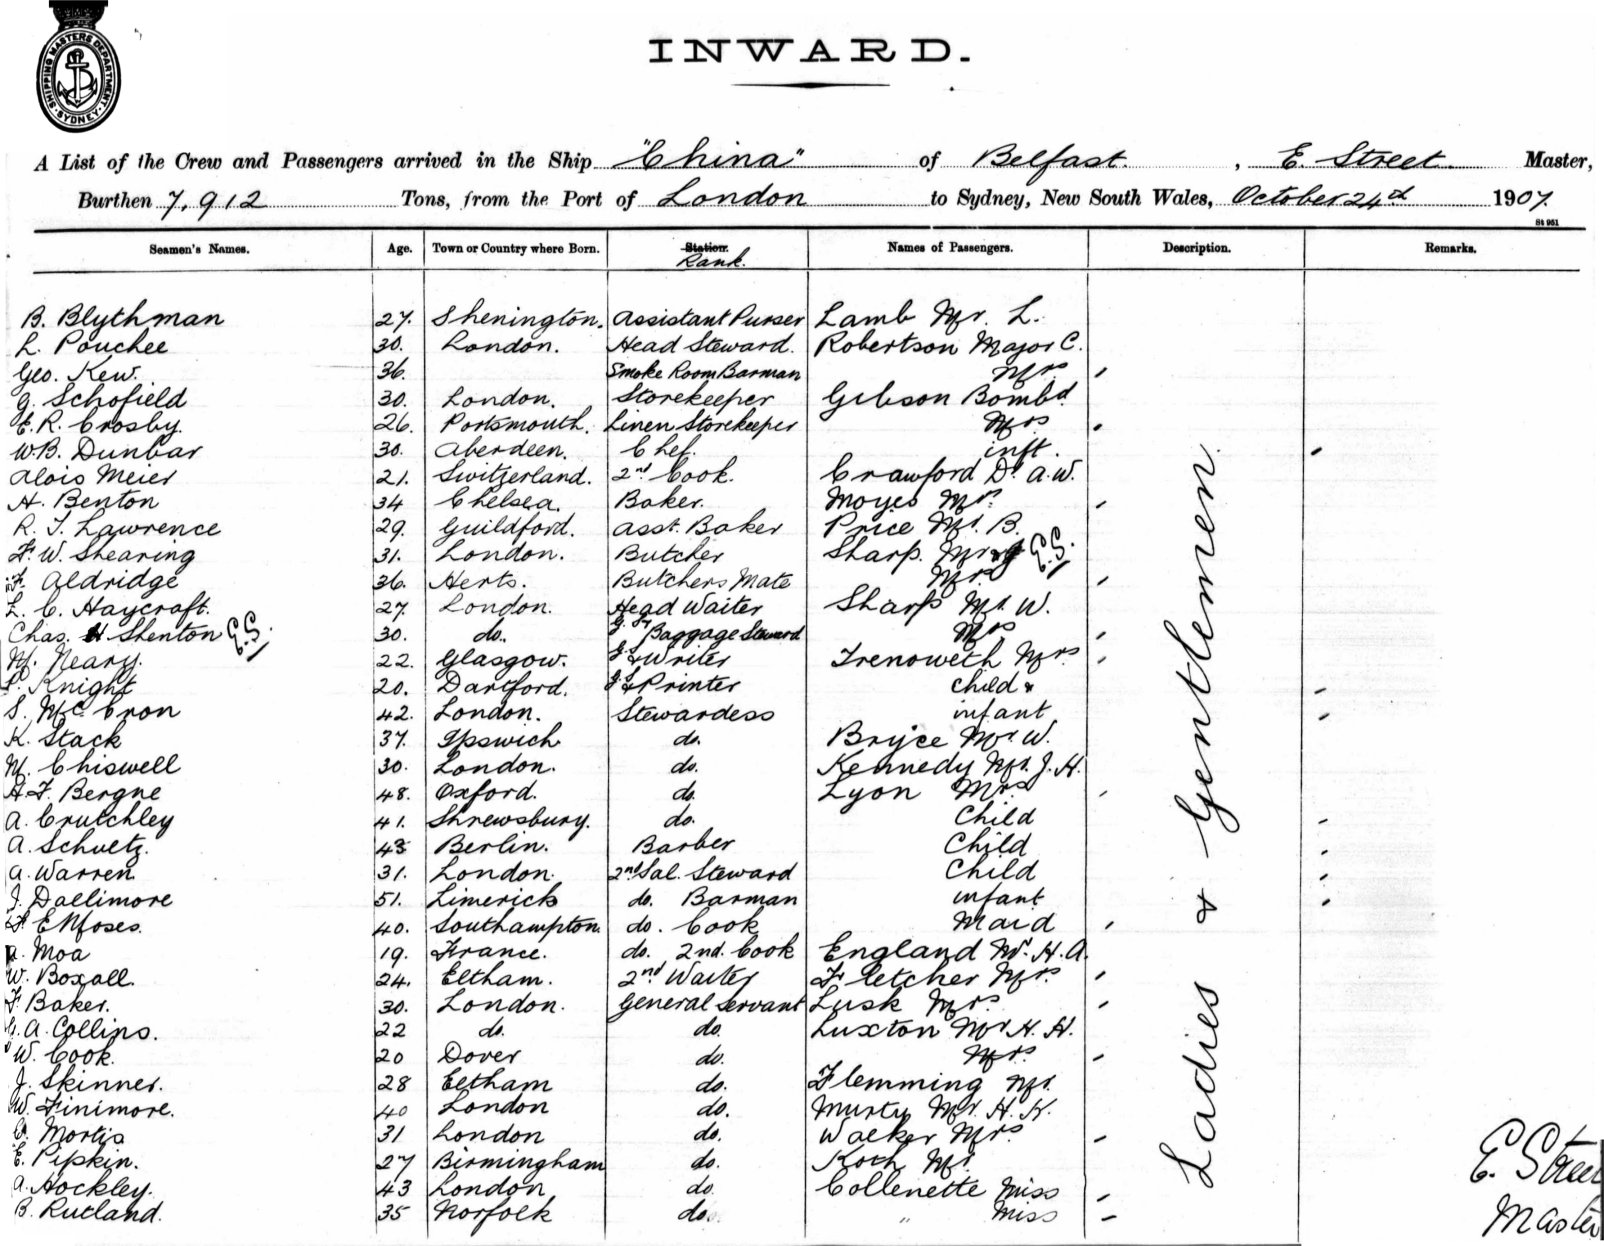 SHIPPING MASTERS DEPARTMENT
SYDNEY
INWARD.
A List of the Crew and Passengers arrived in the Ship "China" of Belfast, E. Street Master,
Burthen 7,912 Tons, from the Port of London to Sydney, New South Wales, October 24th 1907.
St 951
Seamen's Names. Age. Town or Country where Born. Station. Rank. Names of Passengers. Description. Remarks.
B. Blythman 27. Shenington. Assistant Purser Lamb Mr. L.
L. Pouchee 30. London. Head Steward. Robertson Major C.
Geo. Kew. 36. Smoke Room Barman Mrs
G. Schofield 30. London. Storekeeper Gibson Bombd
E. R. Crosby. 26. Portsmouth. Linen Storekeeper Mrs
W. B. Dunbar 30. Aberdeen. Chef. inft.
Alois Meier 21. Switzerland. 2nd Cook. Crawford Dr. A. W.
H. Benton 34 Chelsea. Baker. Moyes Mrs.
R. J. Lawrence 29. Guildford. Asst. Baker Price Mr. B.
F. W. Shearing 31. London. Butcher Sharp. Mr E.S.
F. Aldridge 36. Herts. Butchers Mate Mrs
L. C. Haycraft. 27. London. Head Waiter Sharp Mr. W.
Chas. H Shenton E.S. 30. do. Baggage Steward Mrs
M. Neary. 22. Glasgow. Writer Trenoweth Mrs
Knight 20. Dartford. Printer Child &
S. McCron 42. London. Stewardess infant
K. Stack 37. Ipswich do. Bryce Mr. W.
M. Chiswell 30. London. do. Kennedy Mr. J. H.
A. F. Bergne 48. Oxford. do. Lyon Mrs
A. Crutchley 41. Shrewsbury. do. Child
A. Schuetz. 43 Berlin. Barber Child
A. Warren. 31. London. 2nd Sal. Steward Child
J. Dallimore 51. Limerick do. Barman infant
F. E Moses. 40. Southampton. do. Cook Maid
A. Moa 19. France. do. 2nd. Cook England Mr. H. A.
W. Boxall. 24. Eltham. 2nd Waiter Fletcher Mrs.
F. Baker. 30. London. General Servant Lusk Mrs.
G. A. Collins. 22 do. do. Luxton Mr H. H.
W. Cook. 20 Dover do. Mrs.
J. Skinner. 28 Eltham do. Flemming Mr.
W. Finimore. 40 London do. Murty Mr. H. K.
Mortis 31 London do. Walker Mrs.
E. Pipkin. 27 Birmingham do. Koch Mr.
A. Hockley. 43 London do. Collenette Miss
B. Rutland. 35 Norfolk do. " Miss
Ladies & Gentlemen.
E. Street
Master